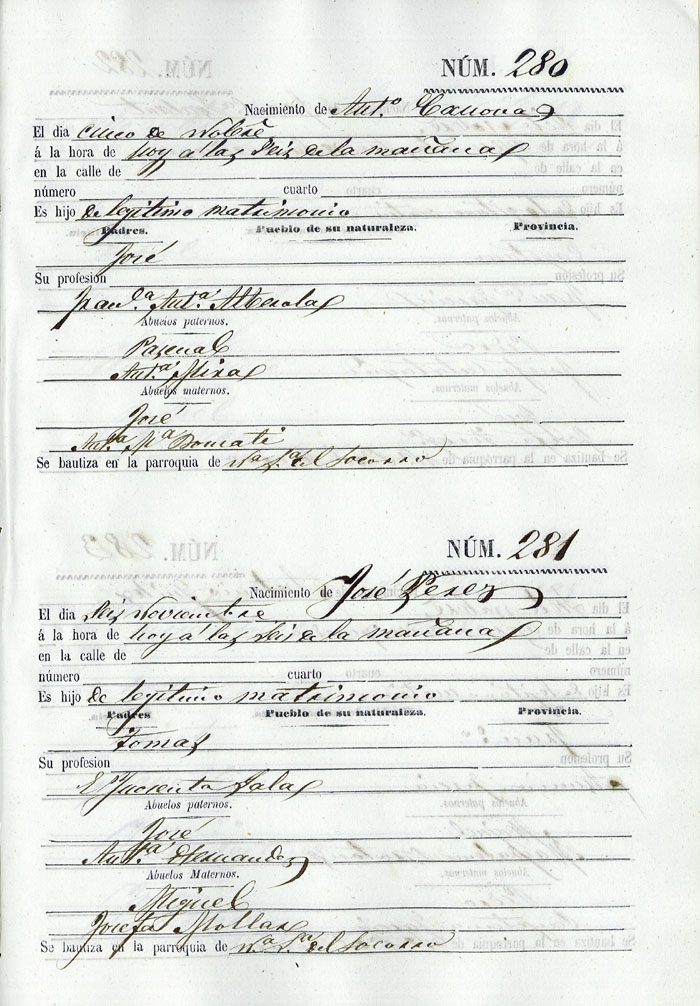 NÚM. 280
Nacimiento de Ant.º Casanova
El dia cinco de Nobre
á la hora de hoy á las seis de la mañana
en la calle de
número cuarto
Es hijo de legitimo matrimonio
Padres. Pueblo de su naturaleza. Provincia.
José
Su profesion
Ant.ª Alberola
Abuelos paternos.
Pascual
Ant.ª Mira
Abuelos maternos.
José
Ant.ª M.ª
Se bautiza en la parroquia de N.ª S.ª del Socorro
NÚM. 281
Nacimiento de José Perez
El dia seis Noviembre
á la hora de hoy á las seis de la mañana
en la calle de
número cuarto
Es hijo de legitimo matrimonio
Padres Pueblo de su naturaleza. Provincia.
Tomas
Su profesion
Jacienta Sala
Abuelos paternos.
José
Ant.ª Hernandez
Abuelos Maternos.
Miguel
Josefa Mollar
Se bautiza en la parroquia de N.ª S.ª del Socorro